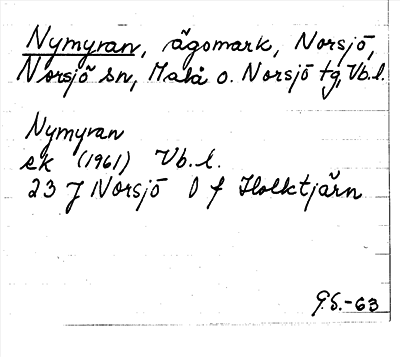 Nymyran, ägomark, Norsjö,
Norsjö sn, Malå o. Norsjö tg, Vb.l.
Nymyran
ek (1961) Vb.l.
23 J Norsjö 0 f Holktjärn
G.S.-63